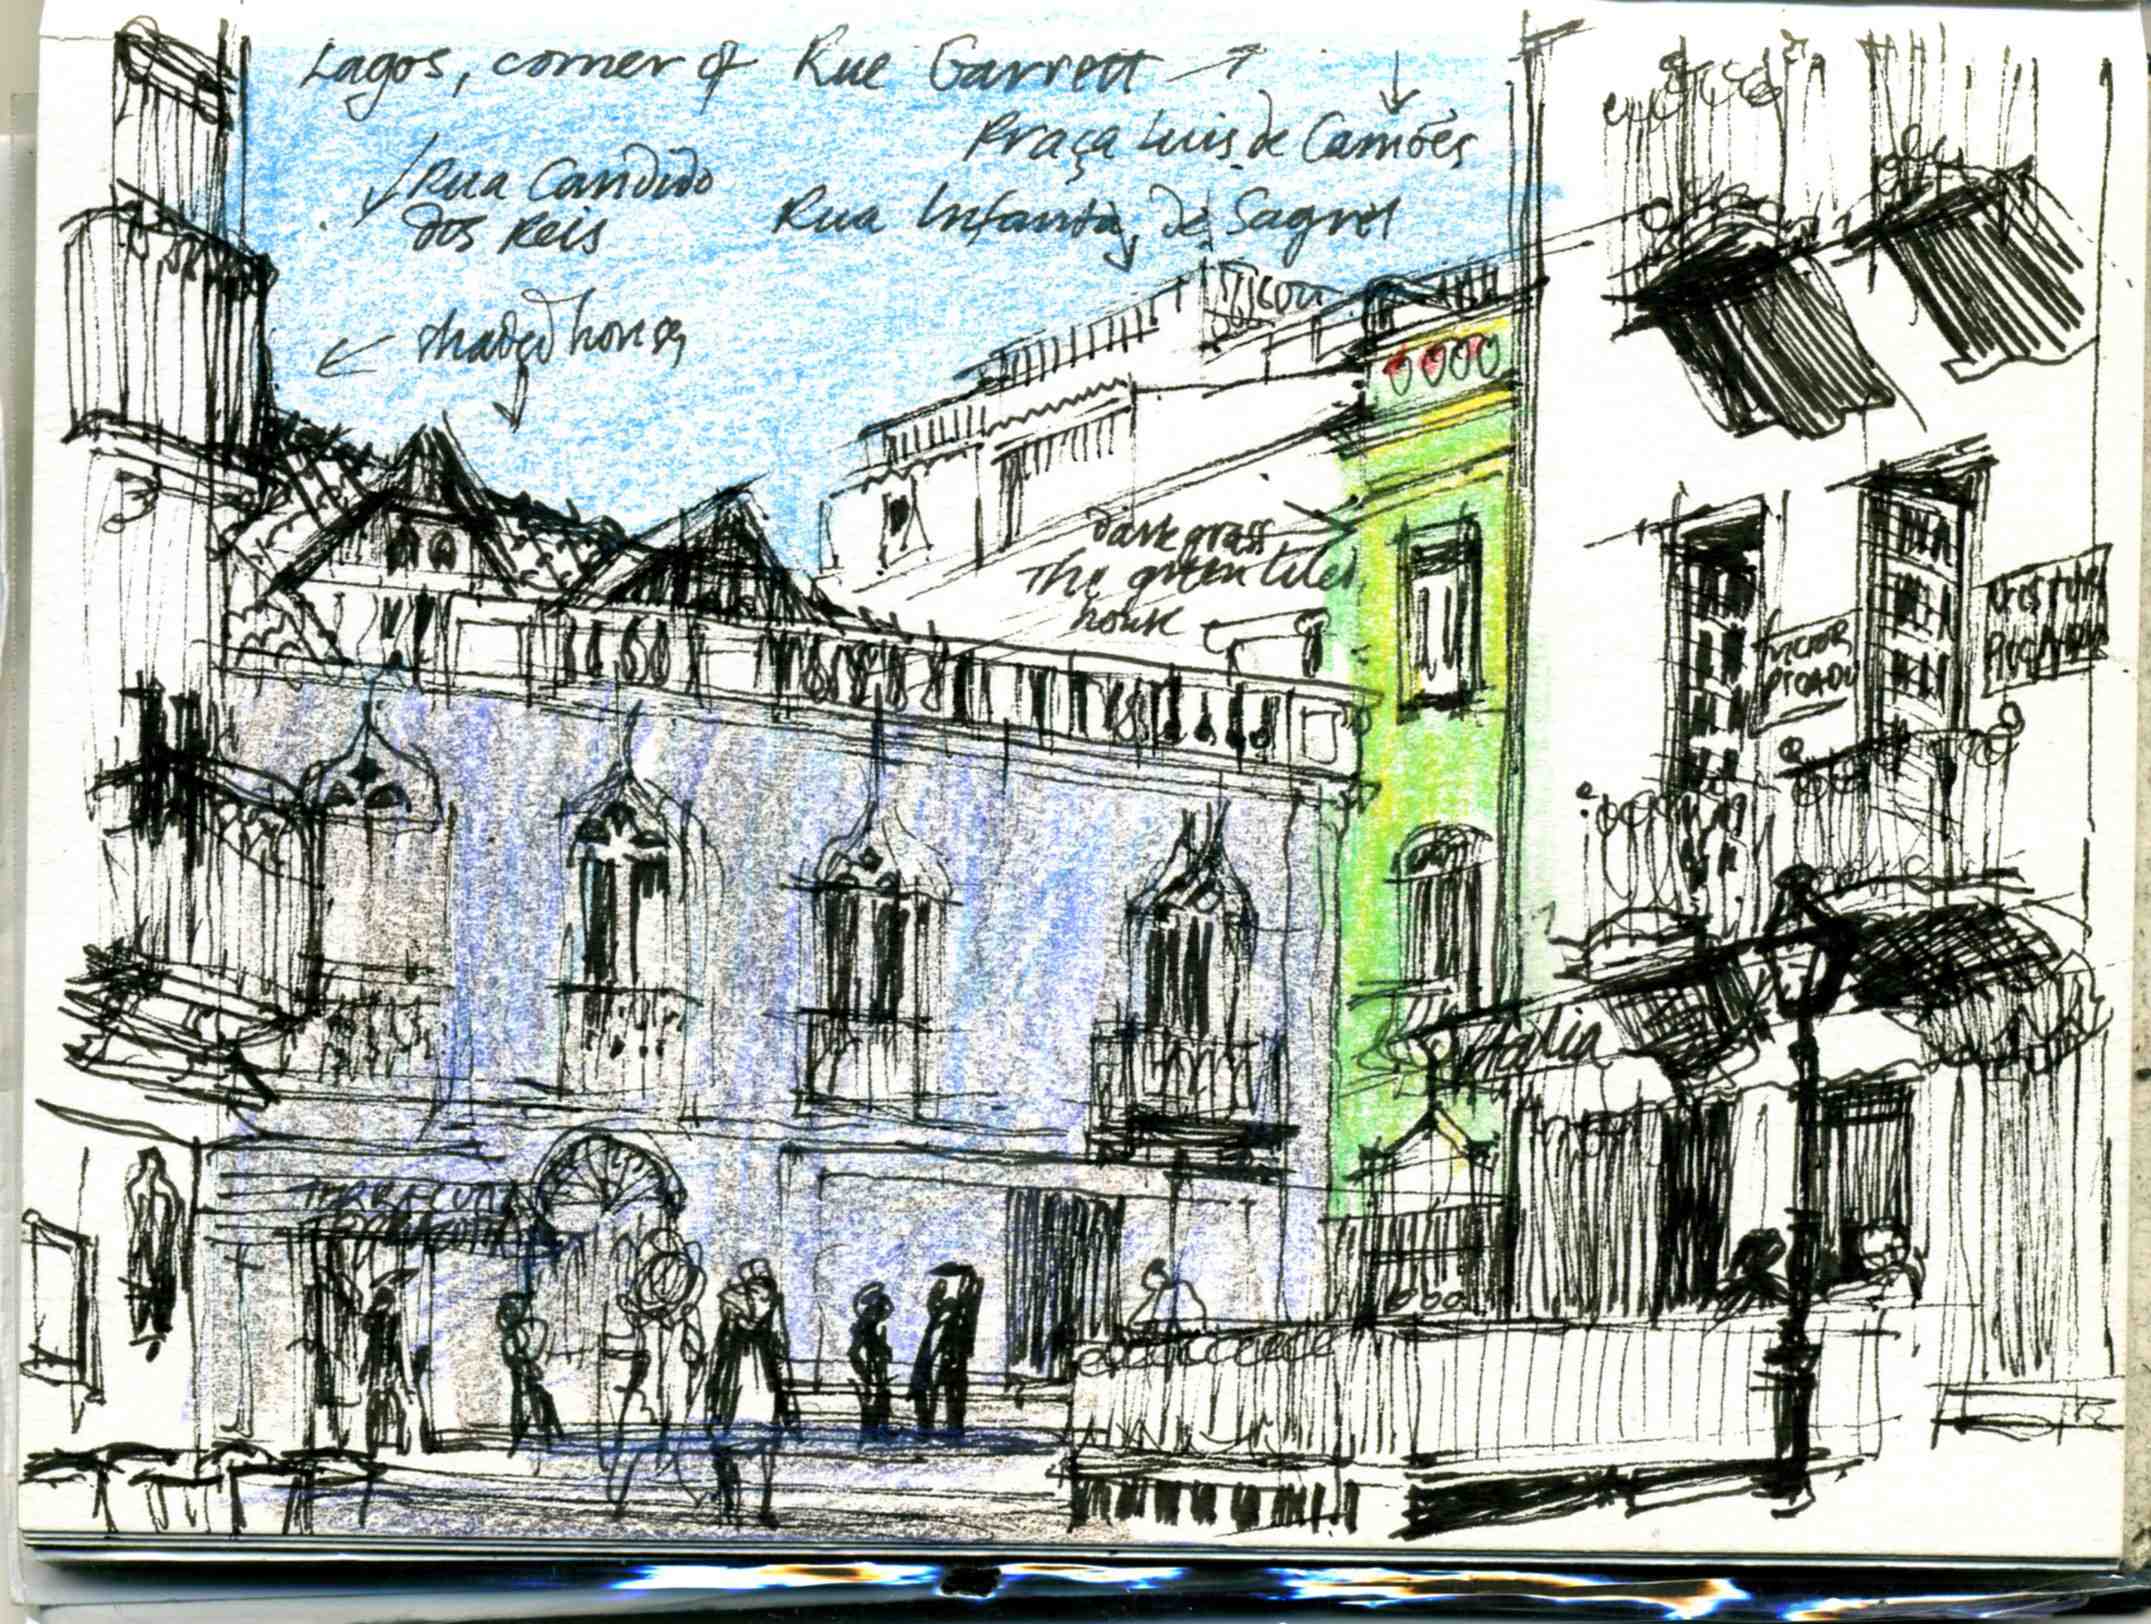 Lagos, corner of Rue Garrett
Praça Luis de Camões
Rua Candido
dos Reis
Rua Infanta, de Sagres
shaded houses
dark grass
The green tiled
house
VICTOR
PICADU
Italia
TERRACOTTA